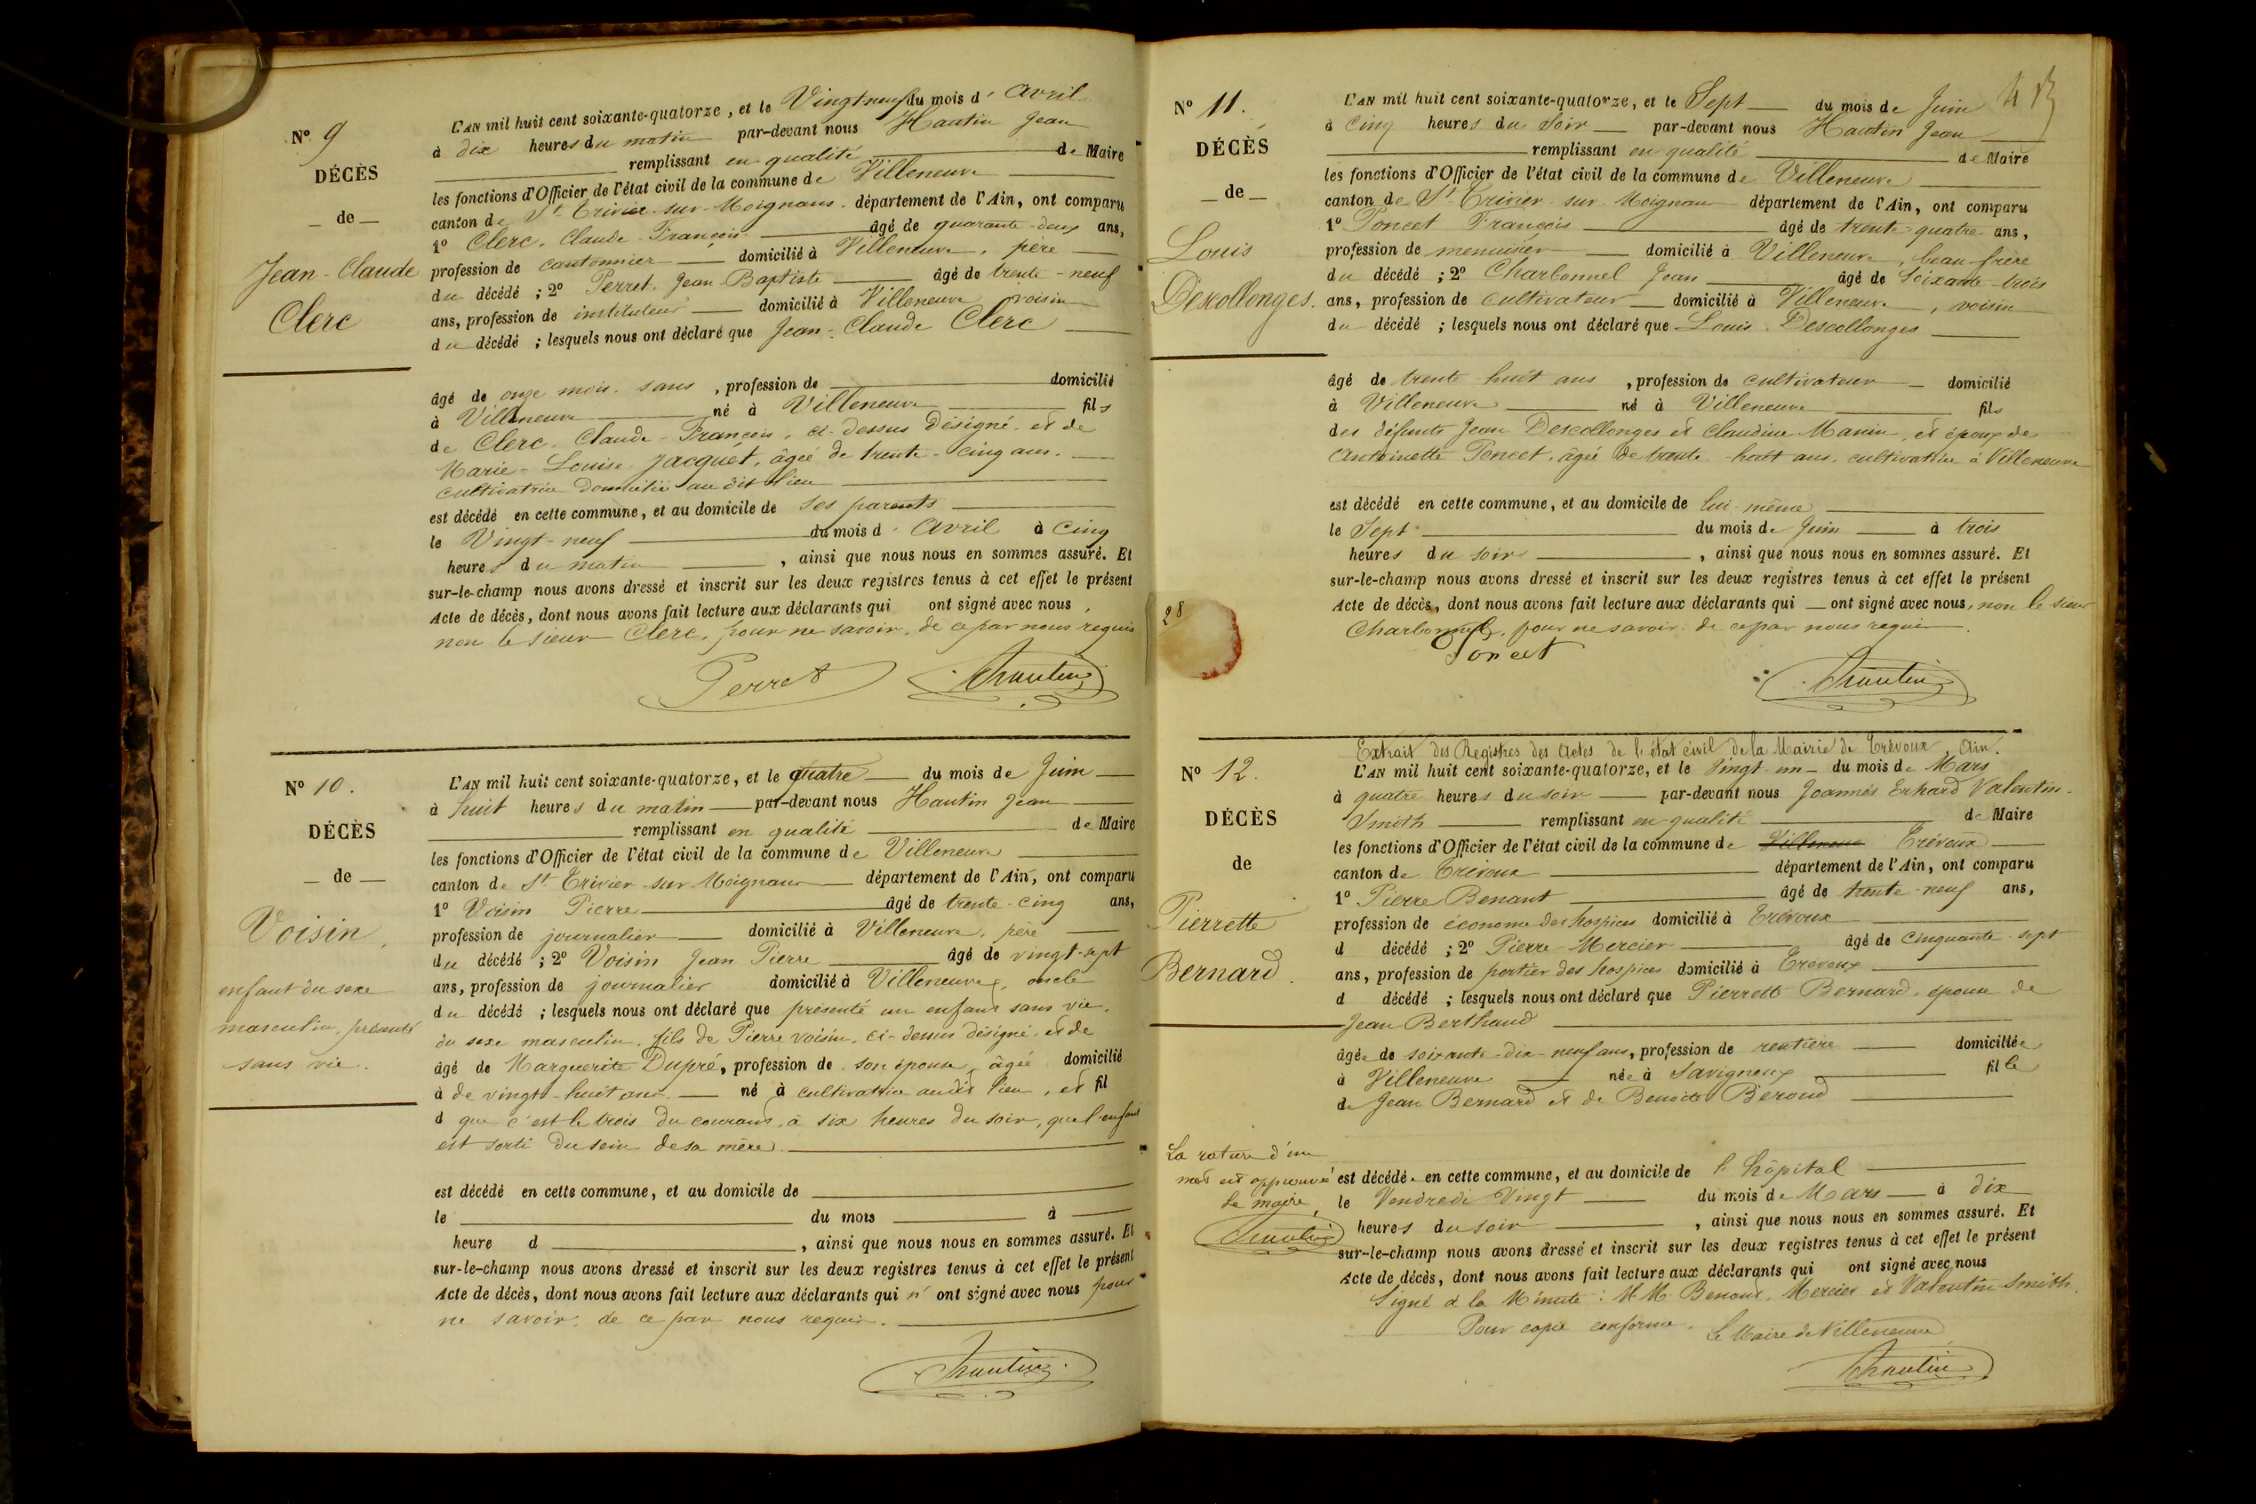 N° 9
DÉCÈS
— de —
Jean-Claude
Clerc
L'AN mil huit cent soixante-quatorze, et le Vingt neuf du mois d'Avril
à dix heures du matin par-devant nous Hautin Jean
remplissant en qualité de Maire
les fonctions d'Officier de l'état civil de la commune de Villeneuve
canton de St Trivier-sur-Moignans département de l'Ain, ont comparu
1° Clerc, Claude-François âgé de quarante-deux ans,
profession de cantonnier domicilié à Villeneuve, père
du décédé ; 2° Perret, Jean-Baptiste âgé de trente-neuf
ans, profession de instituteur domicilié à Villeneuve voisin
du décédé ; lesquels nous ont déclaré que Jean-Claude Clerc
âgé de onze mois sans , profession de domicilié
à Villeneuve né à Villeneuve fils
de Clerc, Claude-François, ci-dessus désigné et de
Marie-Louise Jacquet, âgée de trente-cinq ans.
cultivatrice domiciliée au dit lieu
est décédé en cette commune, et au domicile de ses parents
le Vingt-neuf du mois d'Avril à cinq
heures du matin , ainsi que nous nous en sommes assuré. Et
sur-le-champ nous avons dressé et inscrit sur les deux registres tenus à cet effet le présent
Acte de décès, dont nous avons fait lecture aux déclarants qui ont signé avec nous,
non le sieur Clerc, pour ne savoir, de ce par nous requis
Perret Jhautin
N° 10.
DÉCÈS
— de —
Voisin,
enfant du sexe
masculin, présenté
sans vie.
L'AN mil huit cent soixante-quatorze, et le quatre du mois de Juin
à huit heures du matin par-devant nous Hautin Jean
remplissant en qualité de Maire
les fonctions d'Officier de l'état civil de la commune de Villeneuve
canton de St Trivier-sur-Moignans département de l'Ain, ont comparu
1° Voisin Pierre âgé de trente-cinq ans,
profession de journalier domicilié à Villeneuve, père
du décédé ; 2° Voisin Jean Pierre âgé de vingt-sept
ans, profession de journalier domicilié à Villeneuve, oncle
du décédé ; lesquels nous ont déclaré que présenté un enfant sans vie,
du sexe masculin, fils de Pierre voisin, ci-dessus désigné, et de
âgé de Marguerite Dupré, profession de son épouse, âgée domicilié
à de vingt-huit ans né à cultivatrice audit lieu, et fil
d que c'est le trois du courant, à six heures du soir, que l'enfant
est sorti du sein de sa mère
est décédé en cette commune, et au domicile de
le du mois à
heure d , ainsi que nous nous en sommes assuré. Et
sur-le-champ nous avons dressé et inscrit sur les deux registres tenus à cet effet le présent
Acte de décès, dont nous avons fait lecture aux déclarants qui n'ont signé avec nous pour
ne savoir, de ce par nous requis.
Jhautin
N° 11.
DÉCÈS
— de —
Louis
Descollonges.
28
L'AN mil huit cent soixante-quatorze, et le Sept du mois de Juin
à cinq heures du soir par-devant nous Hautin Jean
remplissant en qualité de Maire
les fonctions d'Officier de l'état civil de la commune de Villeneuve
canton de St Trivier-sur-Moignans département de l'Ain, ont comparu
1° Poncet François âgé de trente-quatre ans,
profession de menuisier domicilié à Villeneuve, beau-frère
du décédé ; 2° Charbonnel Jean âgé de Soixante-trois
ans, profession de cultivateur domicilié à Villeneuve, voisin
du décédé ; lesquels nous ont déclaré que Louis Descollonges
âgé de trente-huit ans , profession de cultivateur domicilié
à Villeneuve né à Villeneuve fils
des défunts Jean Descollonges et Claudine Manin, et époux de
Antoinette Poncet, âgée de trente-huit ans, cultivatrice à Villeneuve
est décédé en cette commune, et au domicile de lui-même
le Sept du mois de Juin à trois
heures du soir , ainsi que nous nous en sommes assuré. Et
sur-le-champ nous avons dressé et inscrit sur les deux registres tenus à cet effet le présent
Acte de décès, dont nous avons fait lecture aux déclarants qui ont signé avec nous, non le sieur
Charbonnel, pour ne savoir de ce par nous requis.
Poncet
Jhautin
N° 12.
DÉCÈS
de
Pierrette
Bernard.
La rature d'un
mot est approuvée
Le maire,
Jhautin
Extrait des Registres des Actes de l'état civil de la Mairie de Trévoux, Ain.
L'AN mil huit cent soixante-quatorze, et le Vingt-un du mois de Mars
à quatre heures du soir par-devant nous Joannès Erhard Valentin-
Smith remplissant en qualité de Maire
les fonctions d'Officier de l'état civil de la commune de Villeneuve Trévoux
canton de Trévoux département de l'Ain, ont comparu
1° Pierre Benant âgé de trente-neuf ans,
profession de économe des hospices domicilié à Trévoux
d décédé ; 2° Pierre Mercier âgé de cinquante-sept
ans, profession de portier des hospices domicilié à Trévoux
d décédé ; lesquels nous ont déclaré que Pierrette Bernard, épouse de
Jean Berthaud
âgée de soixante-dix-neuf ans, profession de rentière domiciliée
à Villeneuve née à Savigneux fille
de Jean Bernard et de Benoîte Beroud
est décédée en cette commune, et au domicile de l'hôpital
le Vendredi Vingt du mois de Mars à dix
heures du soir , ainsi que nous nous en sommes assuré. Et
sur-le-champ nous avons dressé et inscrit sur les deux registres tenus à cet effet le présent
Acte de décès, dont nous avons fait lecture aux déclarants qui ont signé avec nous
Signé à la Minute : MM. Benant, Mercier et Valentin Smith.
Pour copie conforme. Le Maire de Villeneuve
Jhautin